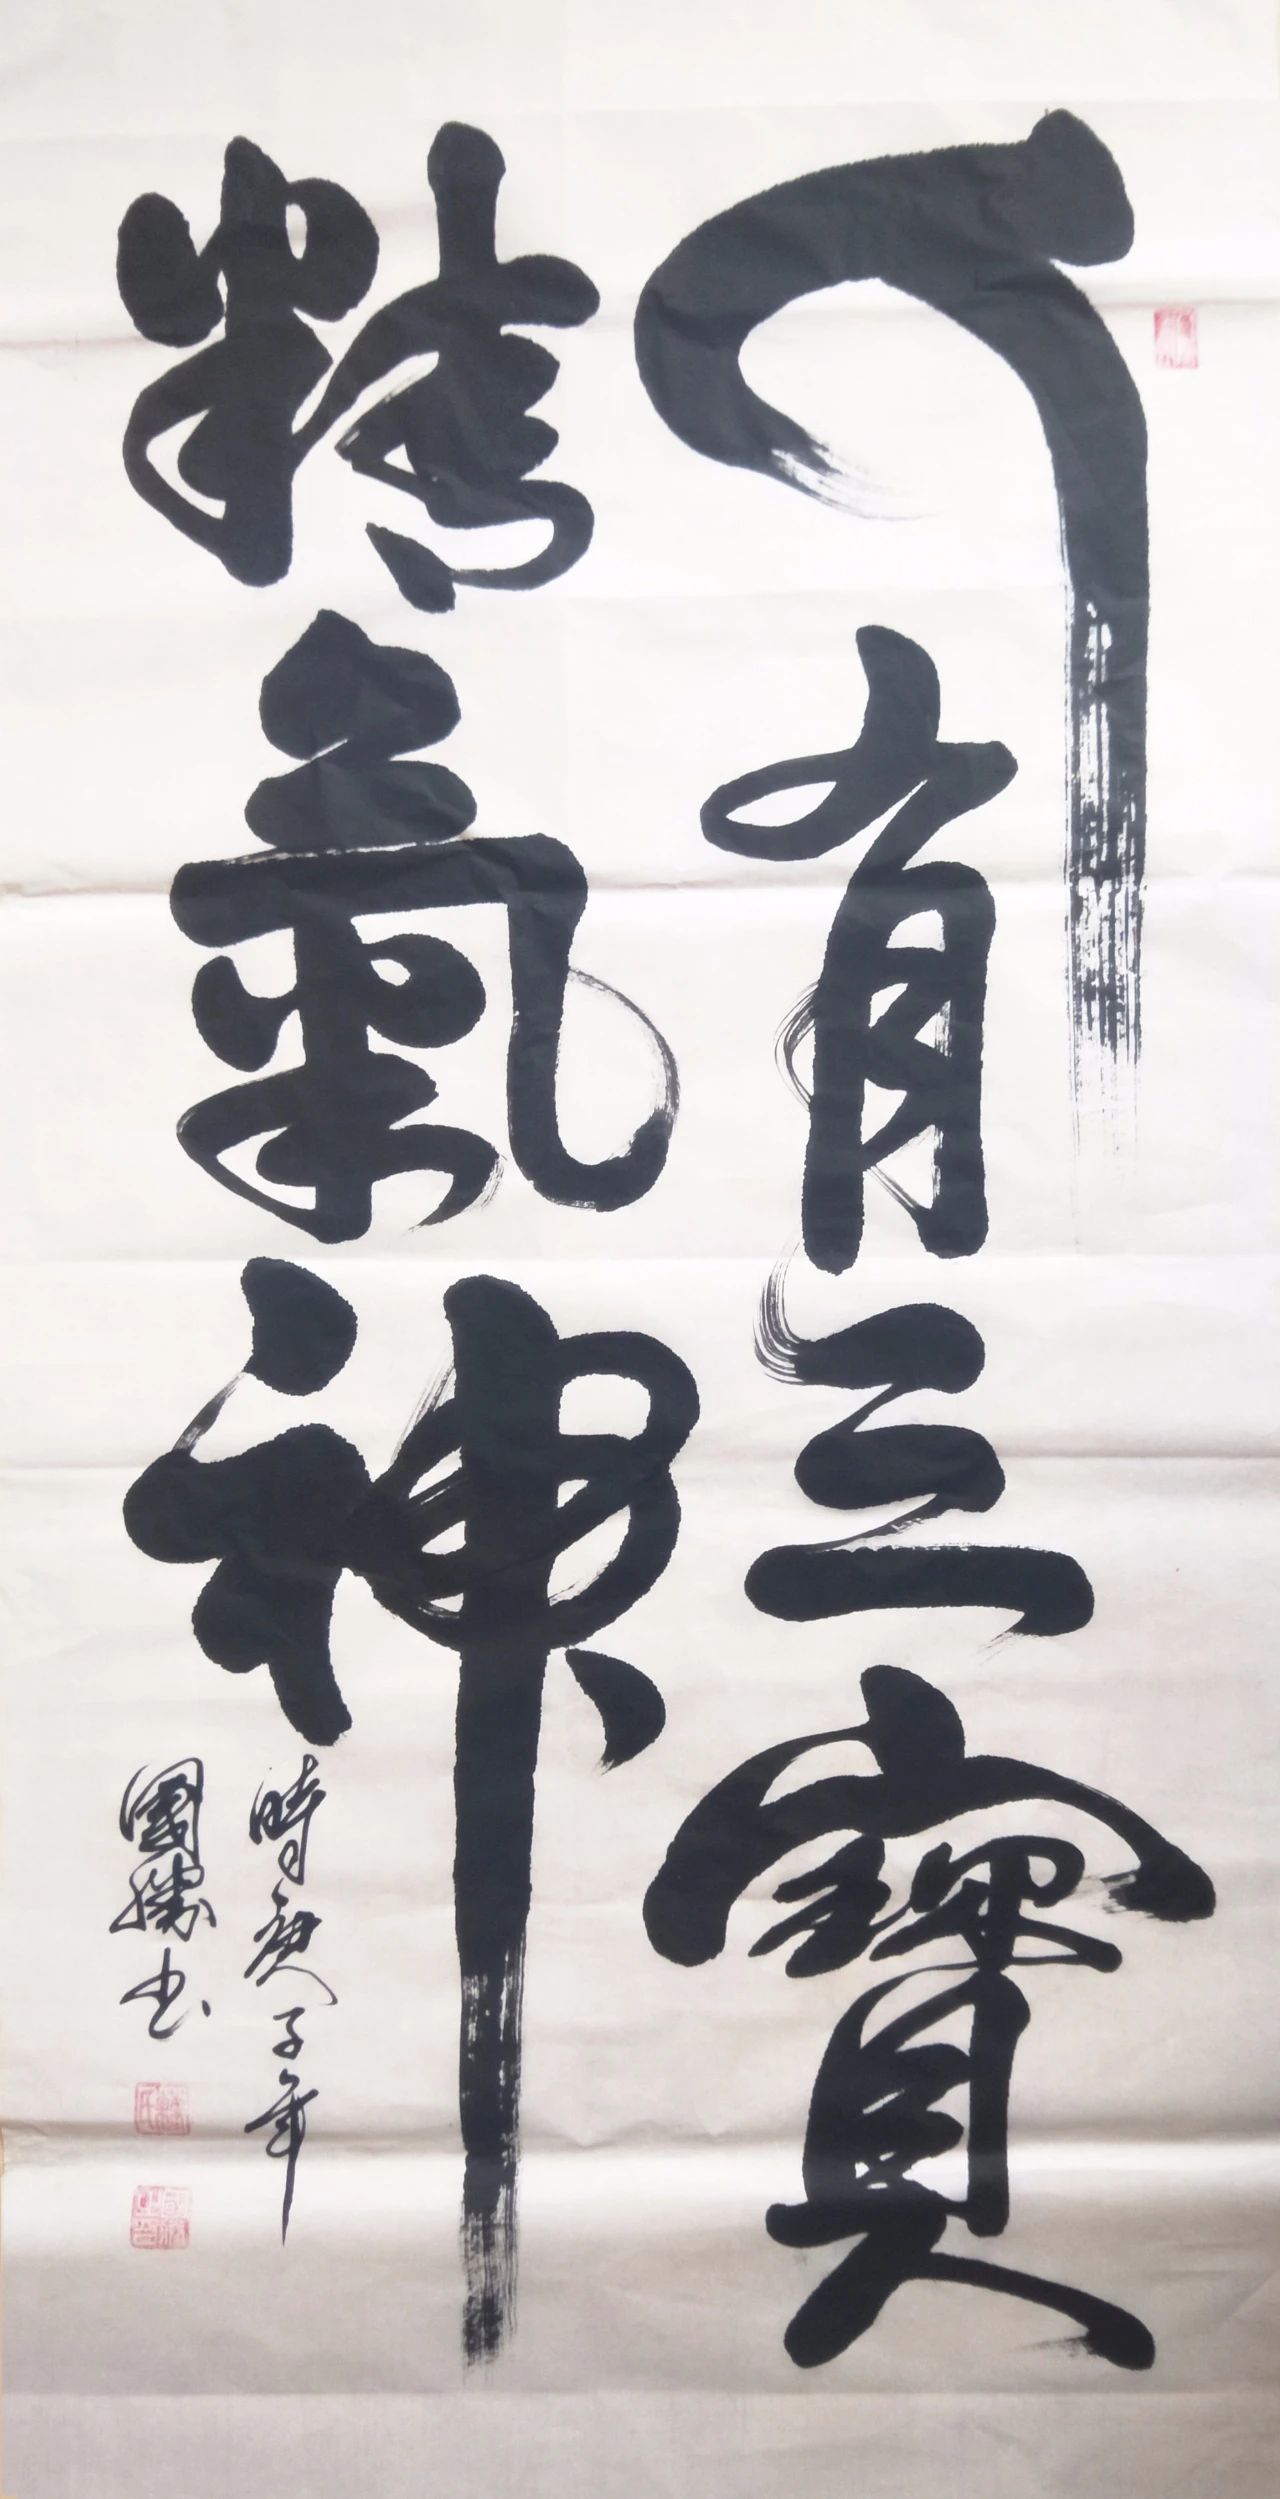 人有三寶
精氣神
時庚子年
國勝书